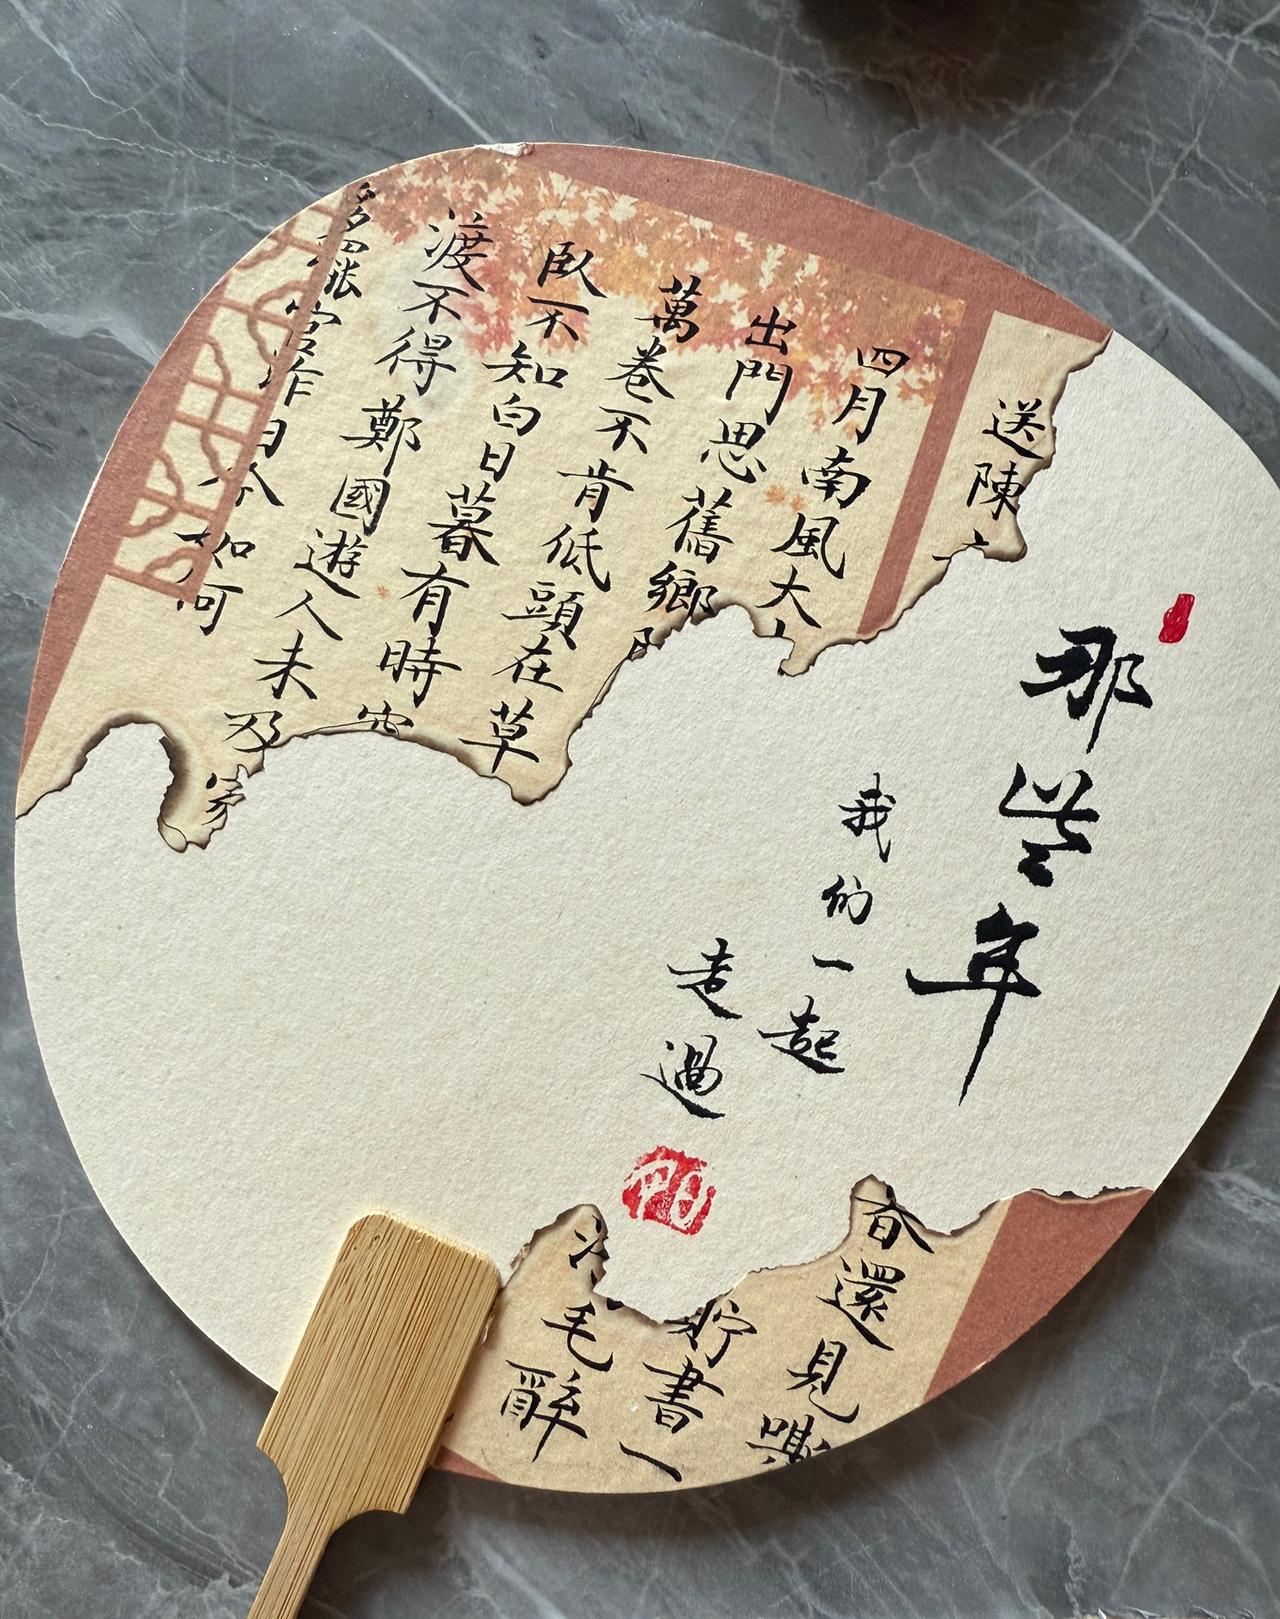 送陳
四月南風大
出門思舊鄉
萬卷不肯低頭在草
臥不知白日暮有時空
渡不得鄭國遊人未及家
多罷官昨日今如何
那些年
我们一起
走過
還見嘶
貯書一
毛辭